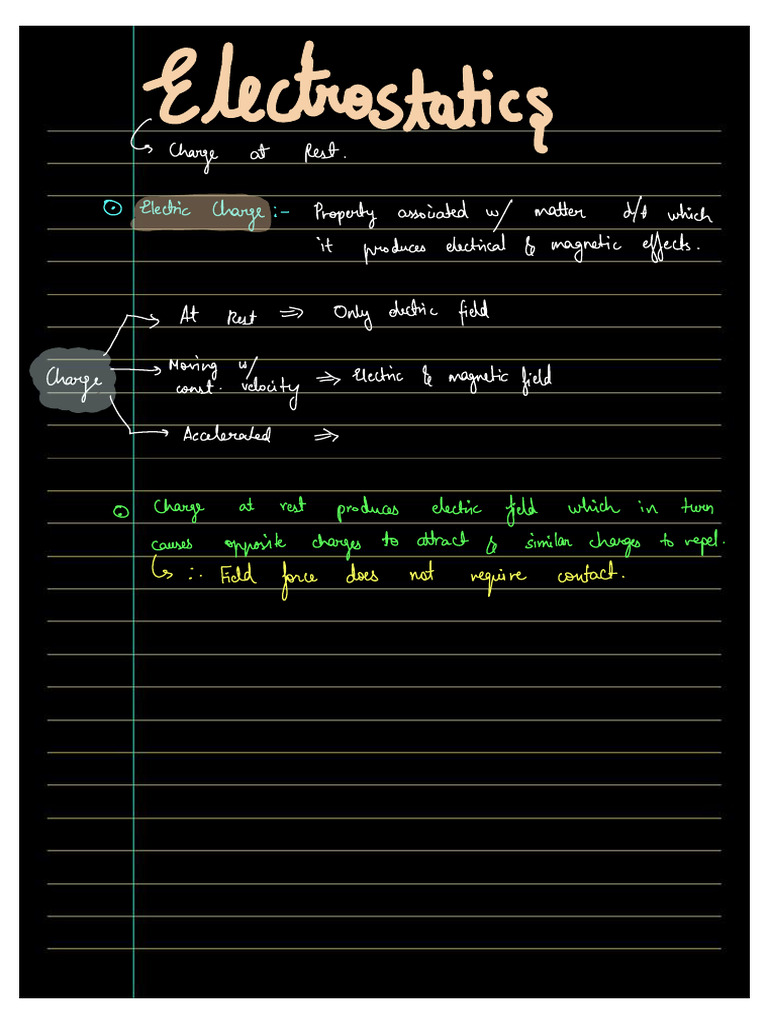 Electrostatics
↳ Charge at Rest.
⊙ Electric Charge :- Property associated w/ matter d/t which
it produces electrical & magnetic effects.
At Rest ⇒ Only electric field
Charge
Moving w/
const. velocity ⇒ Electric & magnetic field
Accelerated ⇒
⊙ Charge at rest produces electric field which in turn
causes opposite charges to attract & similar charges to repel.
↳ ∴ Field force does not require contact.